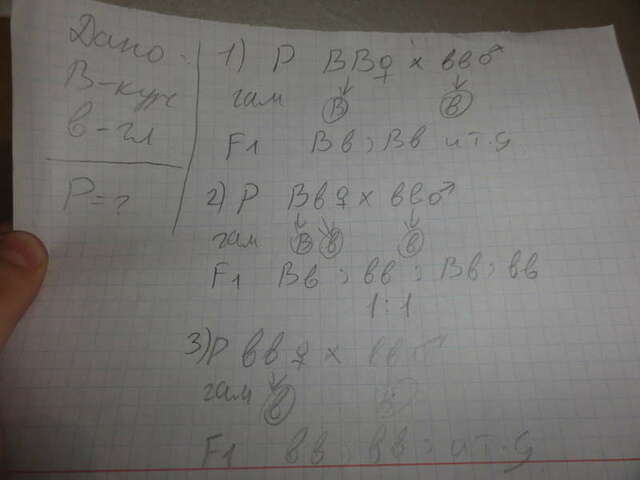 Дано:
В-куч
в-гл
Р=?
1) Р ВВ♀ х вв♂
гам В в
F1 Вв; Вв и т.д
2) Р Вв♀ х вв♂
гам В в в
F1 Вв; вв; Вв; вв
1:1
3) Р вв♀ х вв♂
гам в в
F1 вв; вв; и т.д